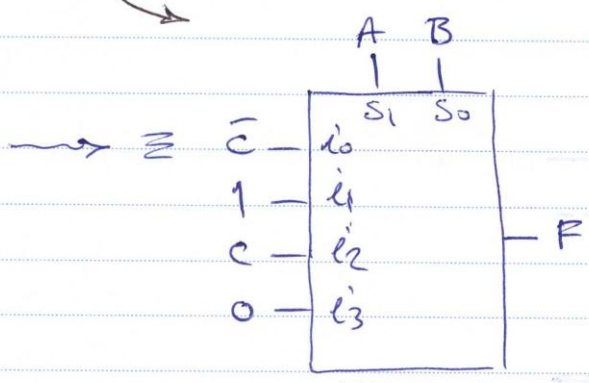 A B
S1 S0
≡ C̄ i0
1 i1
C i2
F
0 i3